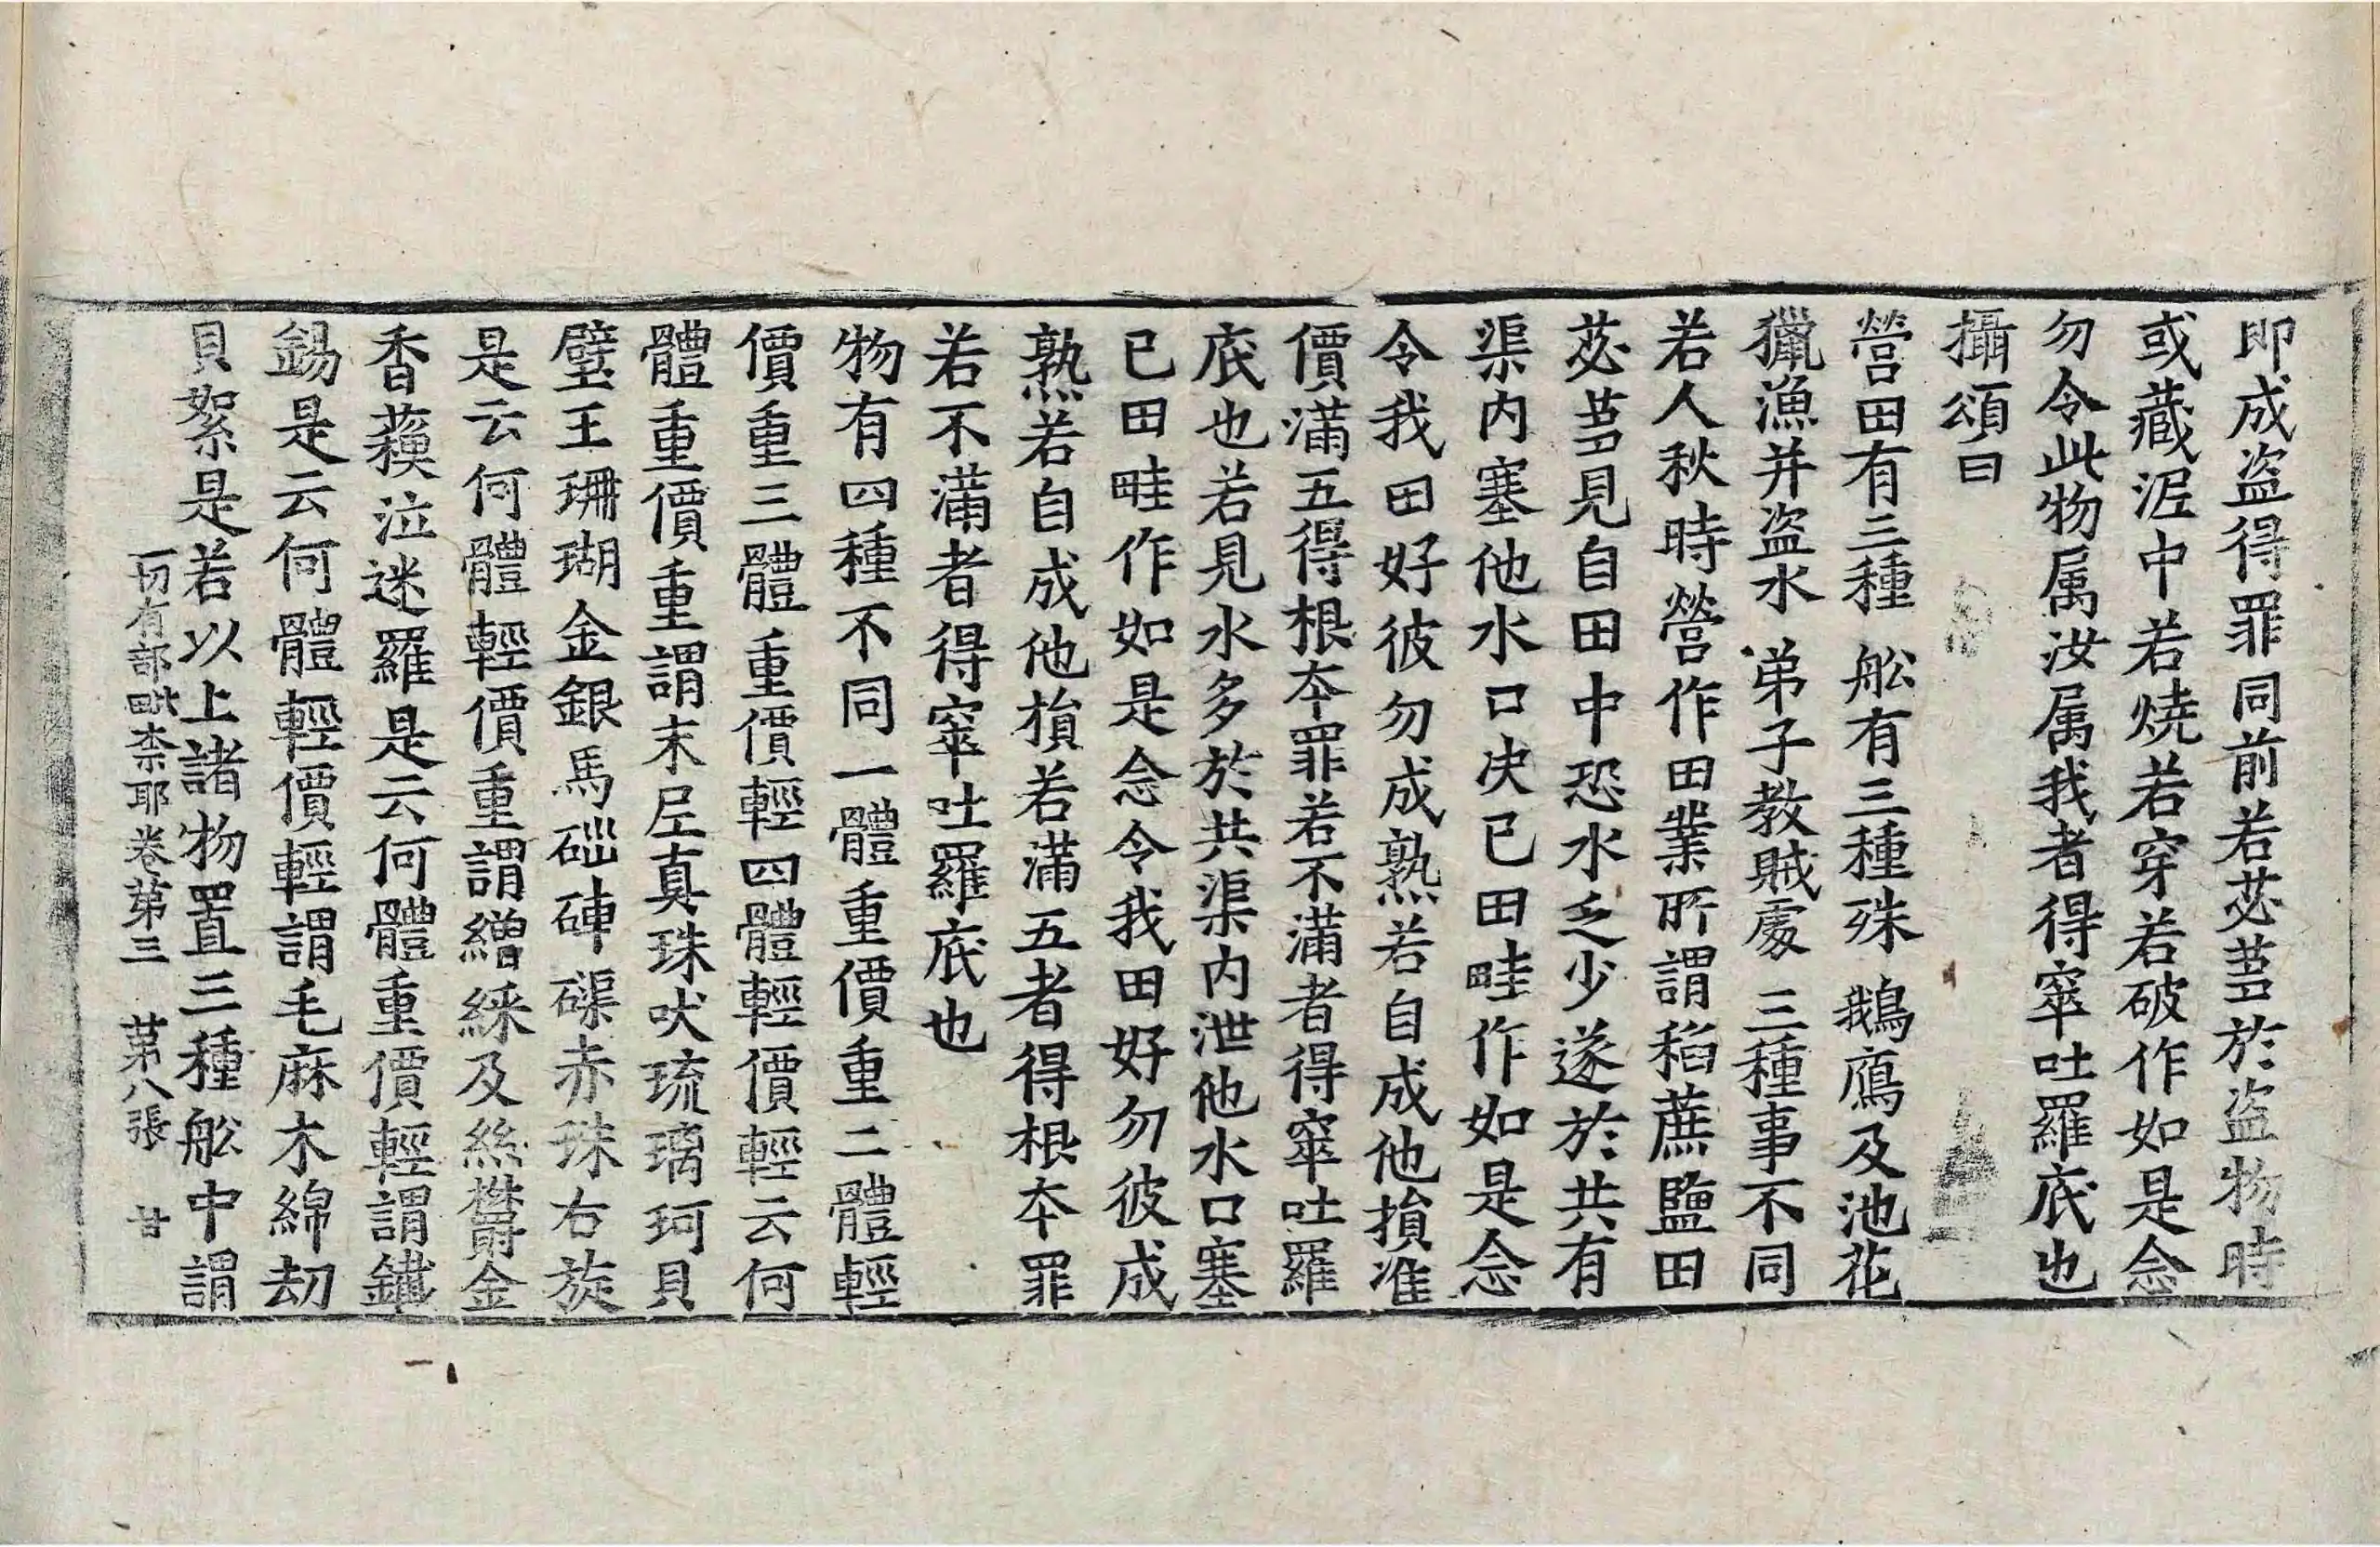 即成盗得罪同前若苾蒭於盗物時
或藏泥中若燒若穿若破作如是念
勿令此物属汝属我者得窣吐羅底也
攝頌曰
營田有三種 舩有三種殊 鵝鴈及池花
獵漁并盗水 弟子教賊處 三種事不同
若人秋時營作田業所謂稻蔗鹽田
苾蒭見自田中恐水乏少遂於共有
渠内塞他水口决已田畦作如是念
令我田好彼勿成熟若自成他損准
價滿五得根夲罪若不滿者得窣吐羅
底也若見水多於共渠内泄他水口塞
已田畦作如是念令我田好勿彼成
熟若自成他損若滿五者得根夲罪
若不滿者得窣吐羅底也
物有四種不同一體重價重二體輕
價重三體重價輕四體輕價輕云何
體重價重謂末尼真珠吠琉璃珂貝
璧玉珊瑚金銀馬碯硨磲赤珠右旋
是云何體輕價重謂繒綵及絲欝金
香蘇泣迷羅是云何體重價輕謂鐵
錫是云何體輕價輕謂毛麻木綿刧
貝絮是若以上諸物置三種舩中謂
一切有部毗柰耶卷第三 第八張 甘